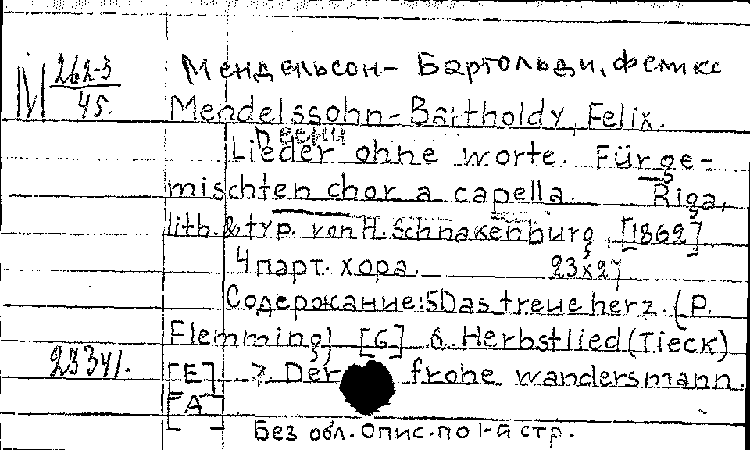 М 262-3/45.
Мендельсон-Бартольди, Феликс
Mendelssohn-Bartholdy, Felix.
Песни
Lieder ohne worte. Für ge-
mischten chor a capella. Riga,
lith. & typ. von H. Schnakenburg, [1862]
4 парт. хора. 23х27
Содержание: 5 Das treue herz. (P.
Flemming) [G] 6. Herbstlied (Tieck)
23341.
[E] 7. Der frohe wandersmann.
[A]
Без обл. Опис. по 1-й стр.